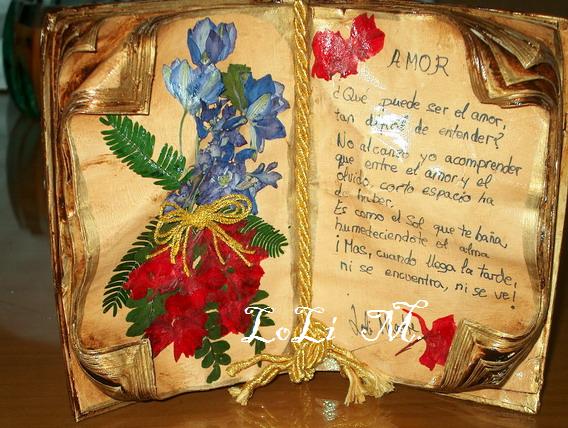 AMOR
¿Qué puede ser el amor,
tan de entender?
No alcanzo yo acomprender
que entre el amor y el
olvido, corto espacio ha
de haber.
Es como el Sol que te baña
humedeciendote el alma
¡Mas, cuando llega la tarde,
ni se encuentra, ni se ve!
LoLi M.